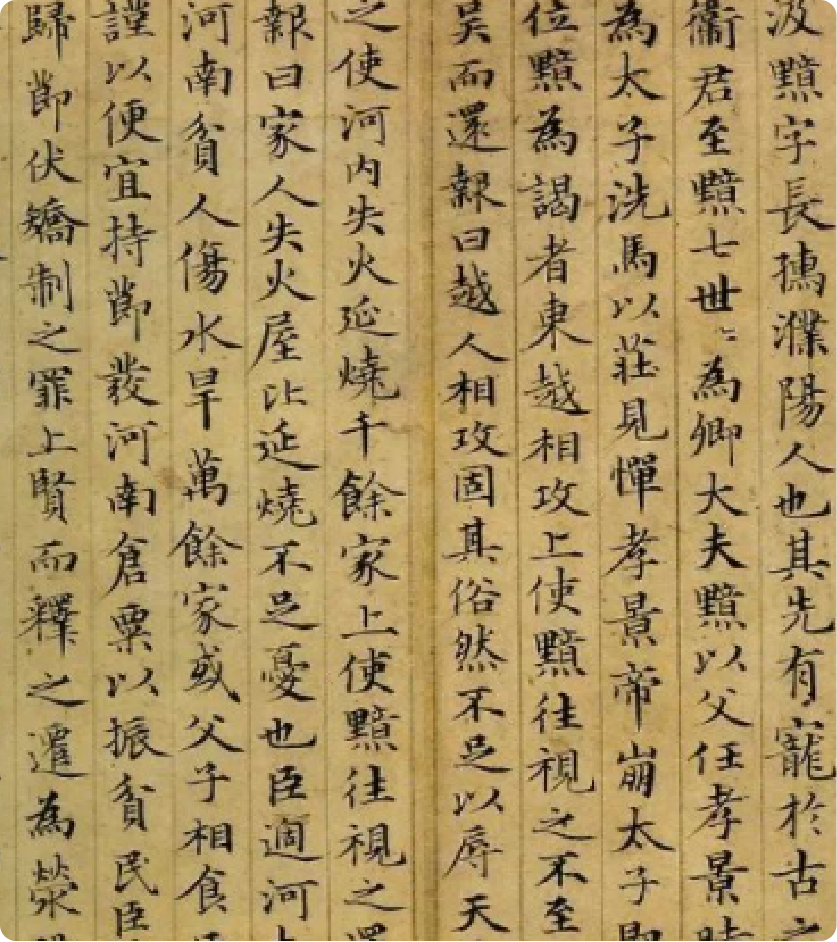 汲黯字長孺濮陽人也其先有寵於古之
衞君至黯七世〻為卿大夫黯以父任孝景時
為太子洗馬以莊見憚孝景帝崩太子即
位黯為謁者東越相攻上使黯往視之不至
吴而還報曰越人相攻固其俗然不足以辱天
之使河内失火延燒千餘家上使黯往視之還
報曰家人失火屋比延燒不足憂也臣過河
河南貧人傷水旱萬餘家或父子相食
謹以便宜持節發河南倉粟以振貧民臣
歸節伏矯制之罪上賢而釋之遷為滎